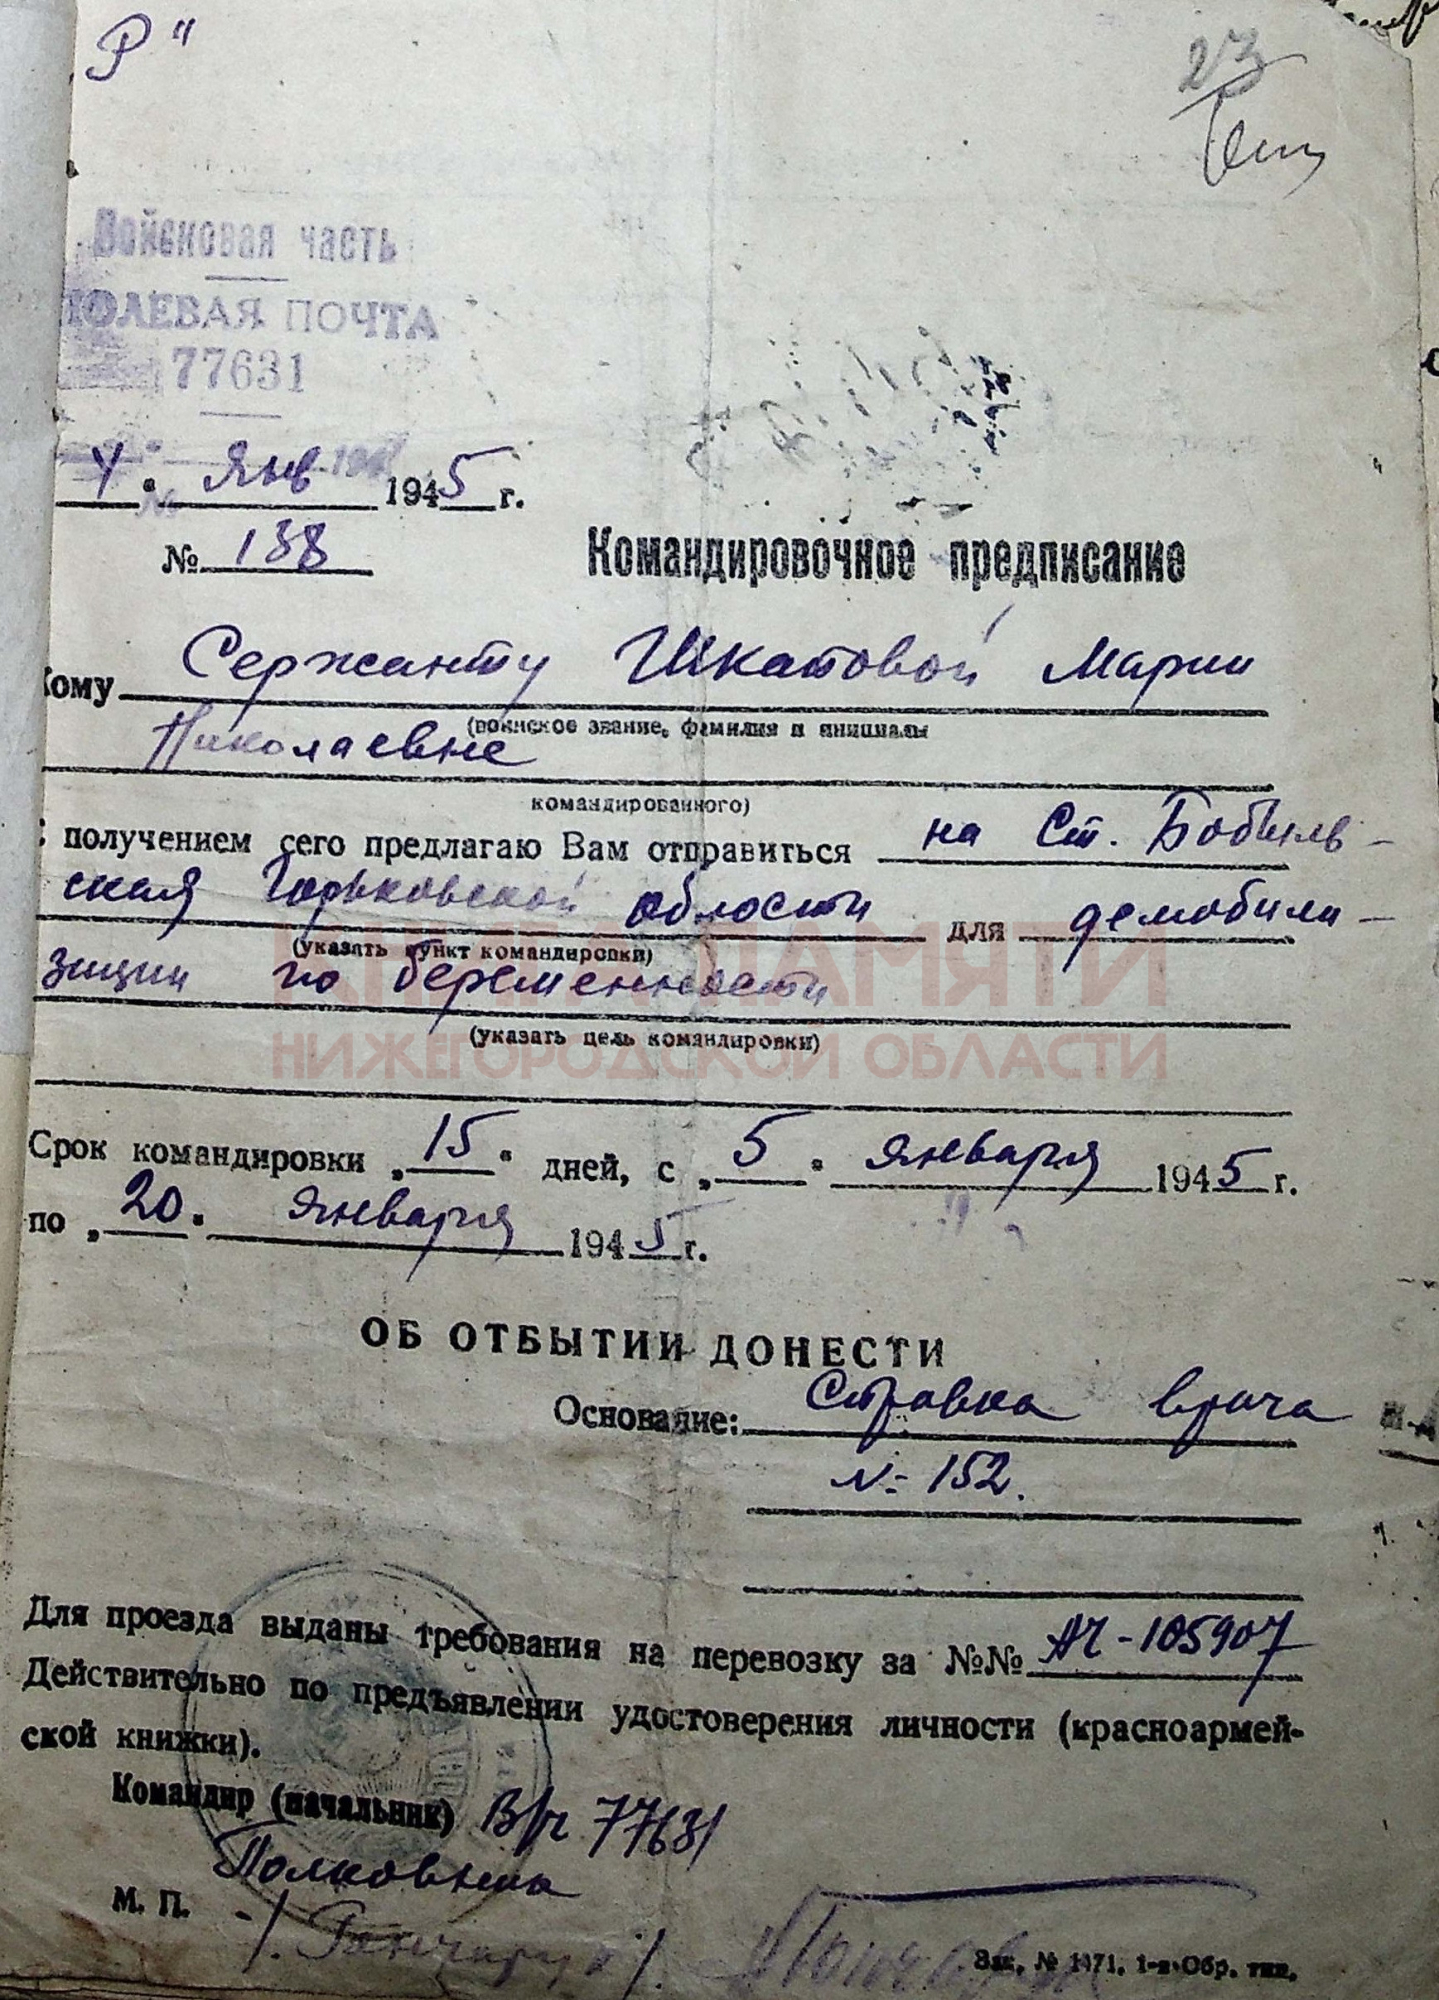 Р"
23
Войсковая часть
ПОЛЕВАЯ ПОЧТА
77631
4 " Янв 1945 г.
№ 138
Командировочное предписание
Кому Сержанту Шкатовой Марии
(воинское звание, фамилия и инициалы
Николаевне
командированного)
С получением сего предлагаю Вам отправиться на Ст. Бобыль-
ская Горьковской области для демобили-
(указать пункт командировки)
зации по беременности
(указать цель командировки)
КНИГА ПАМЯТИ
НИЖЕГОРОДСКОЙ ОБЛАСТИ
Срок командировки „15" дней, с „5" января 1945 г.
по „20" января 1945 г.
ОБ ОТБЫТИИ ДОНЕСТИ
Основание: Справка врача
№ 152.
Для проезда выданы требования на перевозку за №№ АЧ-105907
Действительно по предъявлении удостоверения личности (красноармей-
ской книжки).
Командир (начальник) В/ч 77631
Полковник
М. П. /Гончарук/
Зак. № 1471. 1-я Обр. тип.